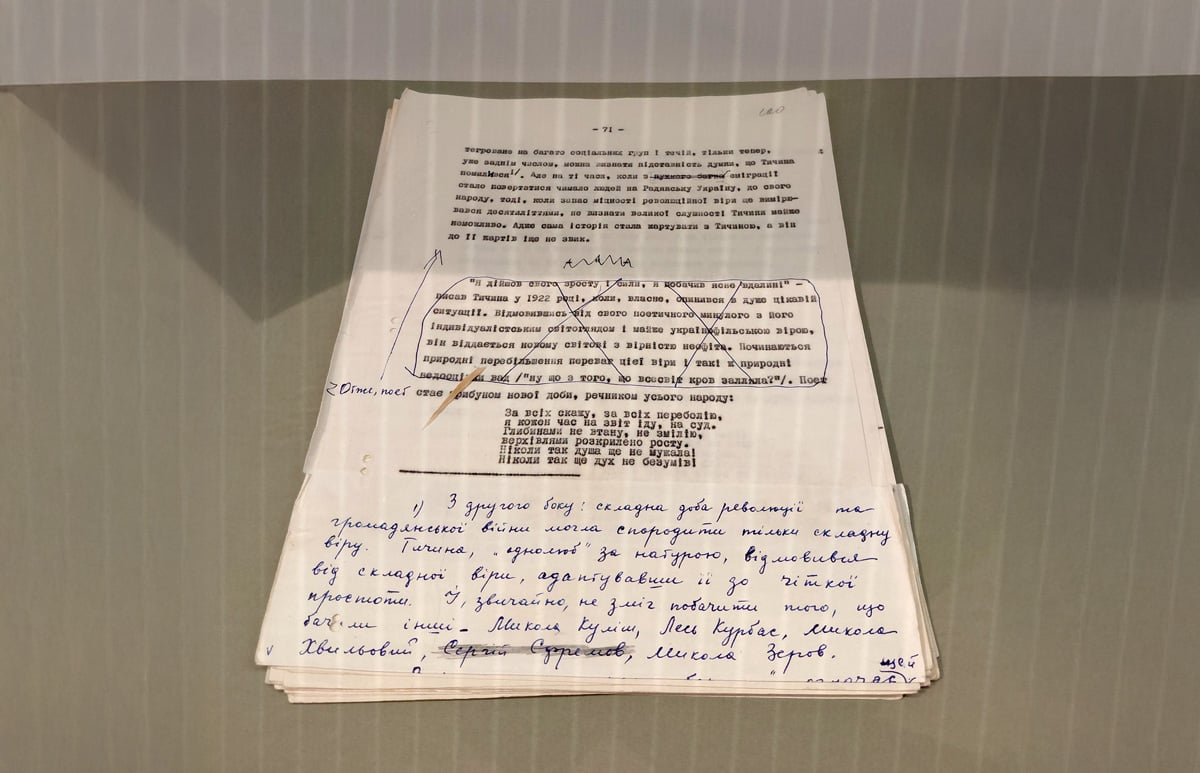 - 71 -
тегроване на багато соціальних груп і течій, тільки тепер,
уже заднім числом, можна визнати підставність думки, що Тичина
помилився1/. Але на ті часи, коли з еміграції
стало повертатися чимало людей на Радянську Україну, до свого
народу, тоді, коли запас міцності революційної віри ще вимірю-
вався десятиліттями, не визнати великої слушності Тичини майже
неможливо. Адже сама історія стала жартувати з Тичиною, а він
до її жартів іще не звик.
"Я дійшов свого зросту і сили, я побачив ясне вдалині" -
писав Тичина у 1922 році, коли, власне, опинився в дуже цікавій
ситуації. Відмовившись від свого поетичного минулого з його
індивідуалістським світоглядом і майже українофільською вірою,
він віддається новому світові з вірністю неофіта. Починаються
природні перебільшення переваг цієї віри і такі ж природні
недооцінки вад /"ну що з того, що всесвіт кров залляла?"/. Поет
Отже, поет
стає трибуном нової доби, речником усього народу:
За всіх скажу, за всіх переболію,
я кожен час на звіт іду, на суд.
Глибинами не втану, не змілію,
верхівлями розкрилено росту.
Ніколи так душа ще не мужала!
Ніколи так ще дух не безумів!
1) З другого боку: складна доба революції та
громадянської війни могла спородити тільки складну
віру. Тичина, "однолюб" за натурою, відмовився
від складної віри, адаптувавши її до чіткої
простоти. І, звичайно, не зміг побачити того, що
бачили інші – Микола Куліш, Лесь Курбас, Микола
Хвильовий, Сергій Єфремов, Микола Зеров.